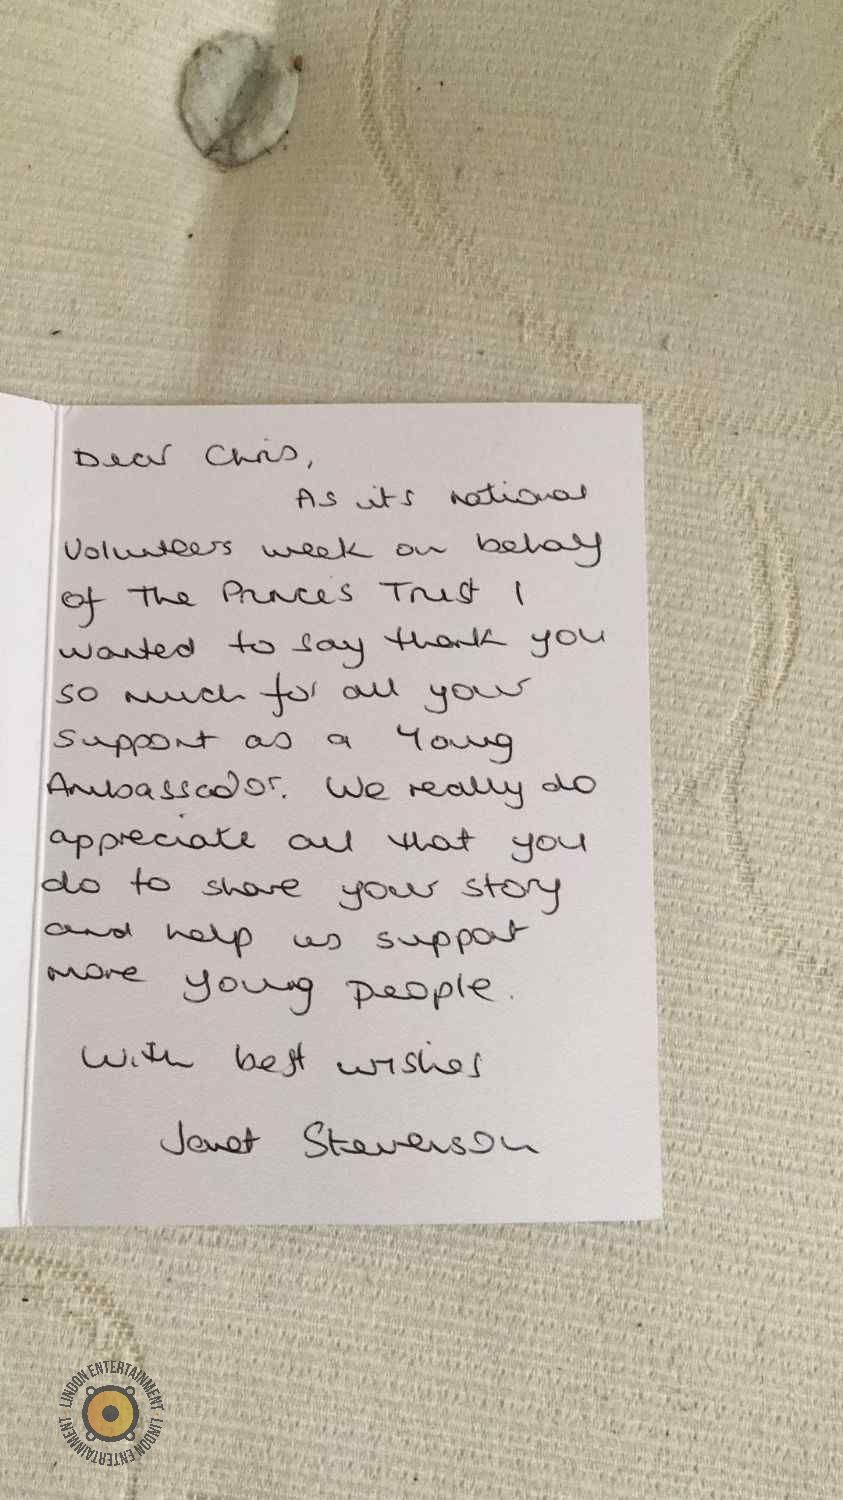 Dear Chris,
As its national
Volunteers week on behalf
of The Princes Trust I
wanted to say thank you
so much for all your
support as a Young
Ambassador. We really do
appreciate all that you
do to share your story
and help us support
more young people.
With best wishes
Janet Stevenson
LINDON ENTERTAINMENT
LINDON ENTERTAINMENT